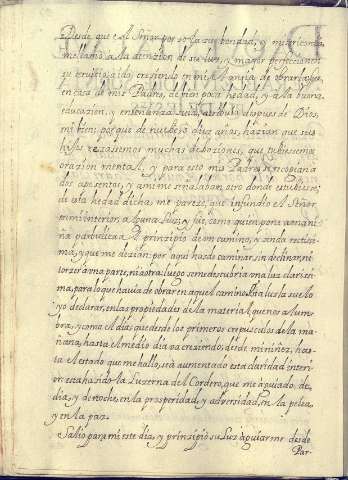 Desde que el Señor por sola su bondad, y misericordia
me llamo a la de mcion de su luz, y mayor perfeccion en
su servicio, a ido cresiendo en mi el ansia de obrar la vir
en casa de mis Padres, de bien poca hedad, y a la buena
educacion, y enseñanza suia, atribuo despues de Dios,
mi bien; porque de nuebe o diez años, hazian que sus
hijos rezasemos muchas deboziones, que tubiesemos
orazion mental, y para esto mis Padres se recojian a
dos aposentos, y a mi me señalaban otro donde estubiese;
de esta hedad dicha me parece, que infundio el Señor
en mi interior una luz, y fue, como quien pone a una ni
ña parbulica a el principio de un camino, y senda rectisi
ma, y que me dezian: por aqui has de caminar, sin declinar, ni
torcer a una parte, ni a otra luego se me descubria una luz clarisi
ma, para lo que havia de obrar en aquel camino. Esta luz la suelo
yo declarar, en las propiedades de la material que nos alum
bra, y como el dia, que desde los primeros crepusculos de la ma
ñana, hasta el medio dia va cresiendo, desde mi niñez, has
ta el estado que me hallo, se a aumentado esta claridad interi
or esta ha sido la Luzerna del Cordero, que me a guiado, de
dia, y de noche, en la prosperidad, y adversidad, en la pelea,
y en la paz.
Salio para mi este dia, y prinsipio su luz a guiarme desde
Par-